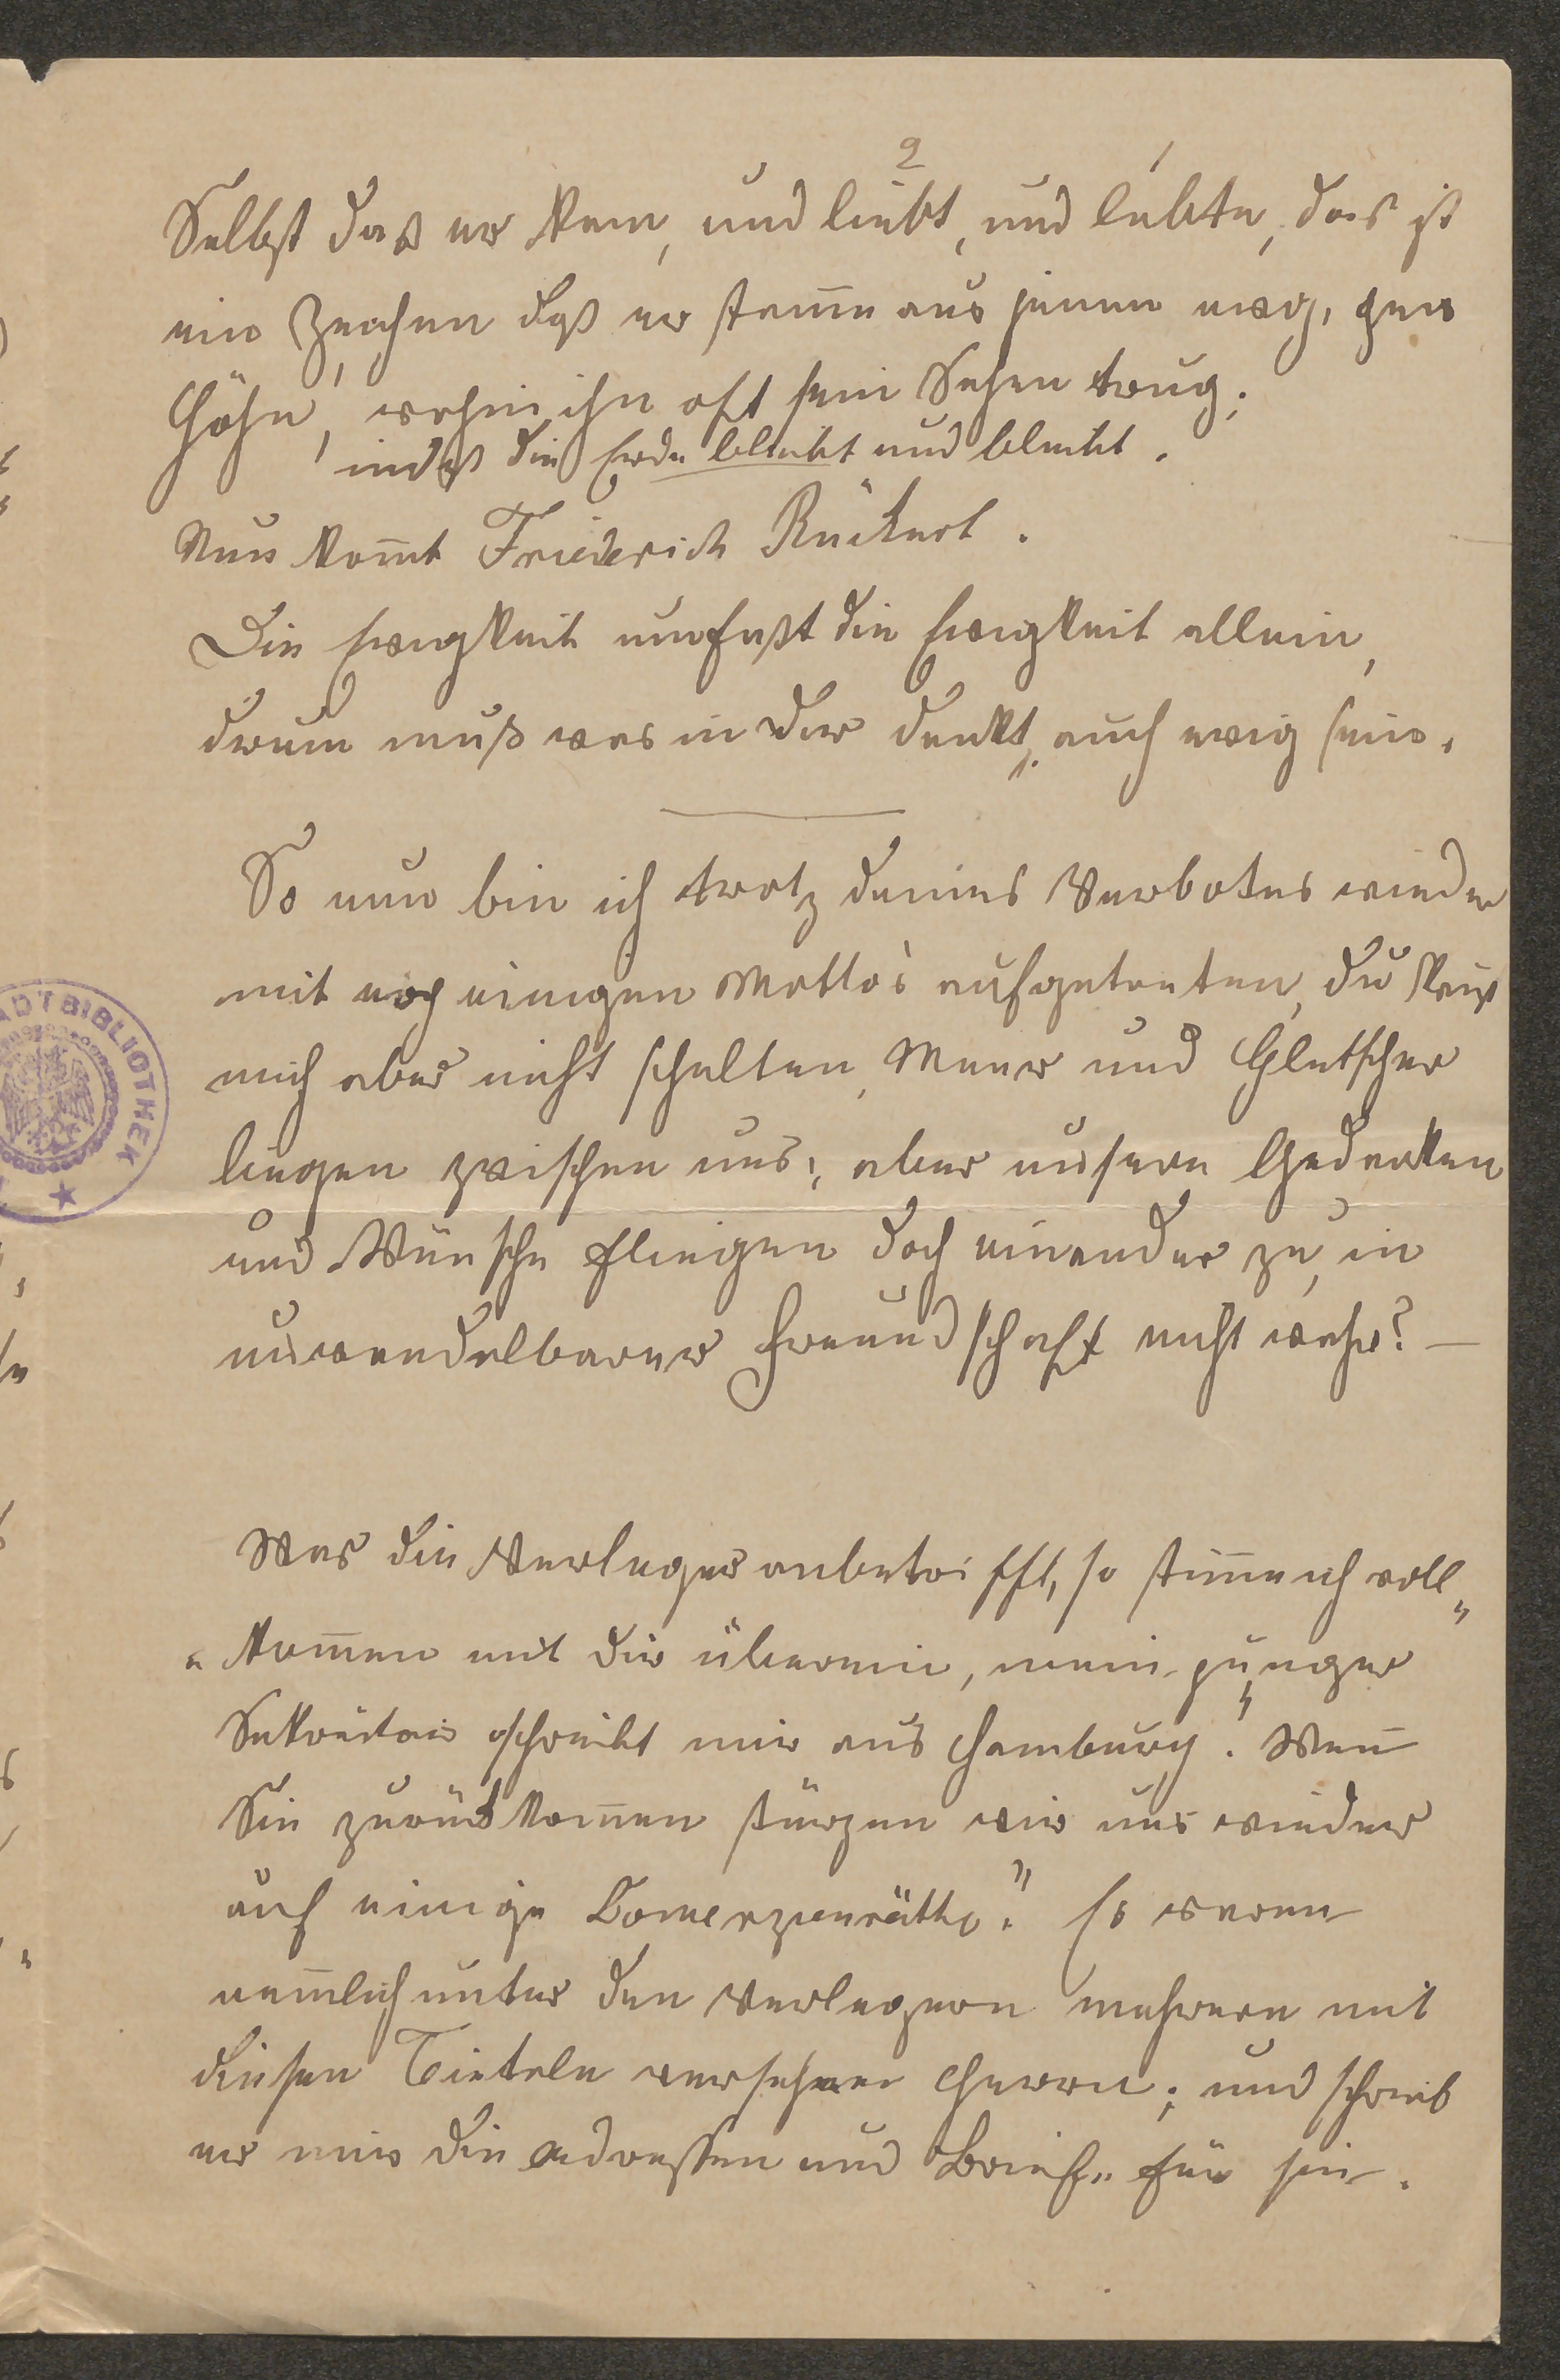 2 1
Selbst daß er kam, und liebt, und lebte, das ist
ein Zeichen daß er stam̄e aus jenen ewigen
Höhn, wohin ihn oft sein Sehen trug;
indeß die Erde bleibt und bleibt.
Nun kom̄t Friederich Rückert.
Die Ewigkeit umfaßt die Ewigkeit allein,
drum muß was in dir denkt, auch ewig sein.
So nun bin ich trotz deines Verbotes wieder
mit noch einigen Motto's aufgetreten, du kanst
mich aber nicht schelten, Meer und Gletscher
liegen zwischen uns; aber unsere Gedanken
und Wünsche fliegen doch einander zu, in
unwandelbarer Freundschaft nicht wahr? —
Was die Verleger anbetrifft, so stim̄e ich voll„
„kom̄en mit dir überein, mein junger
Sekretair schreibt mir aus Hamburg „Wen̄
Sie zurückkom̄en stürzen wir uns wieder
auf einige Comerzienräthe." Es waren
nem̄lich unter den Verlegern mehrere mit
diesen Titeln versehene Herren; und schrieb
er mir die Adressen und Briefe für sie.
STADTBIBLIOTHEK